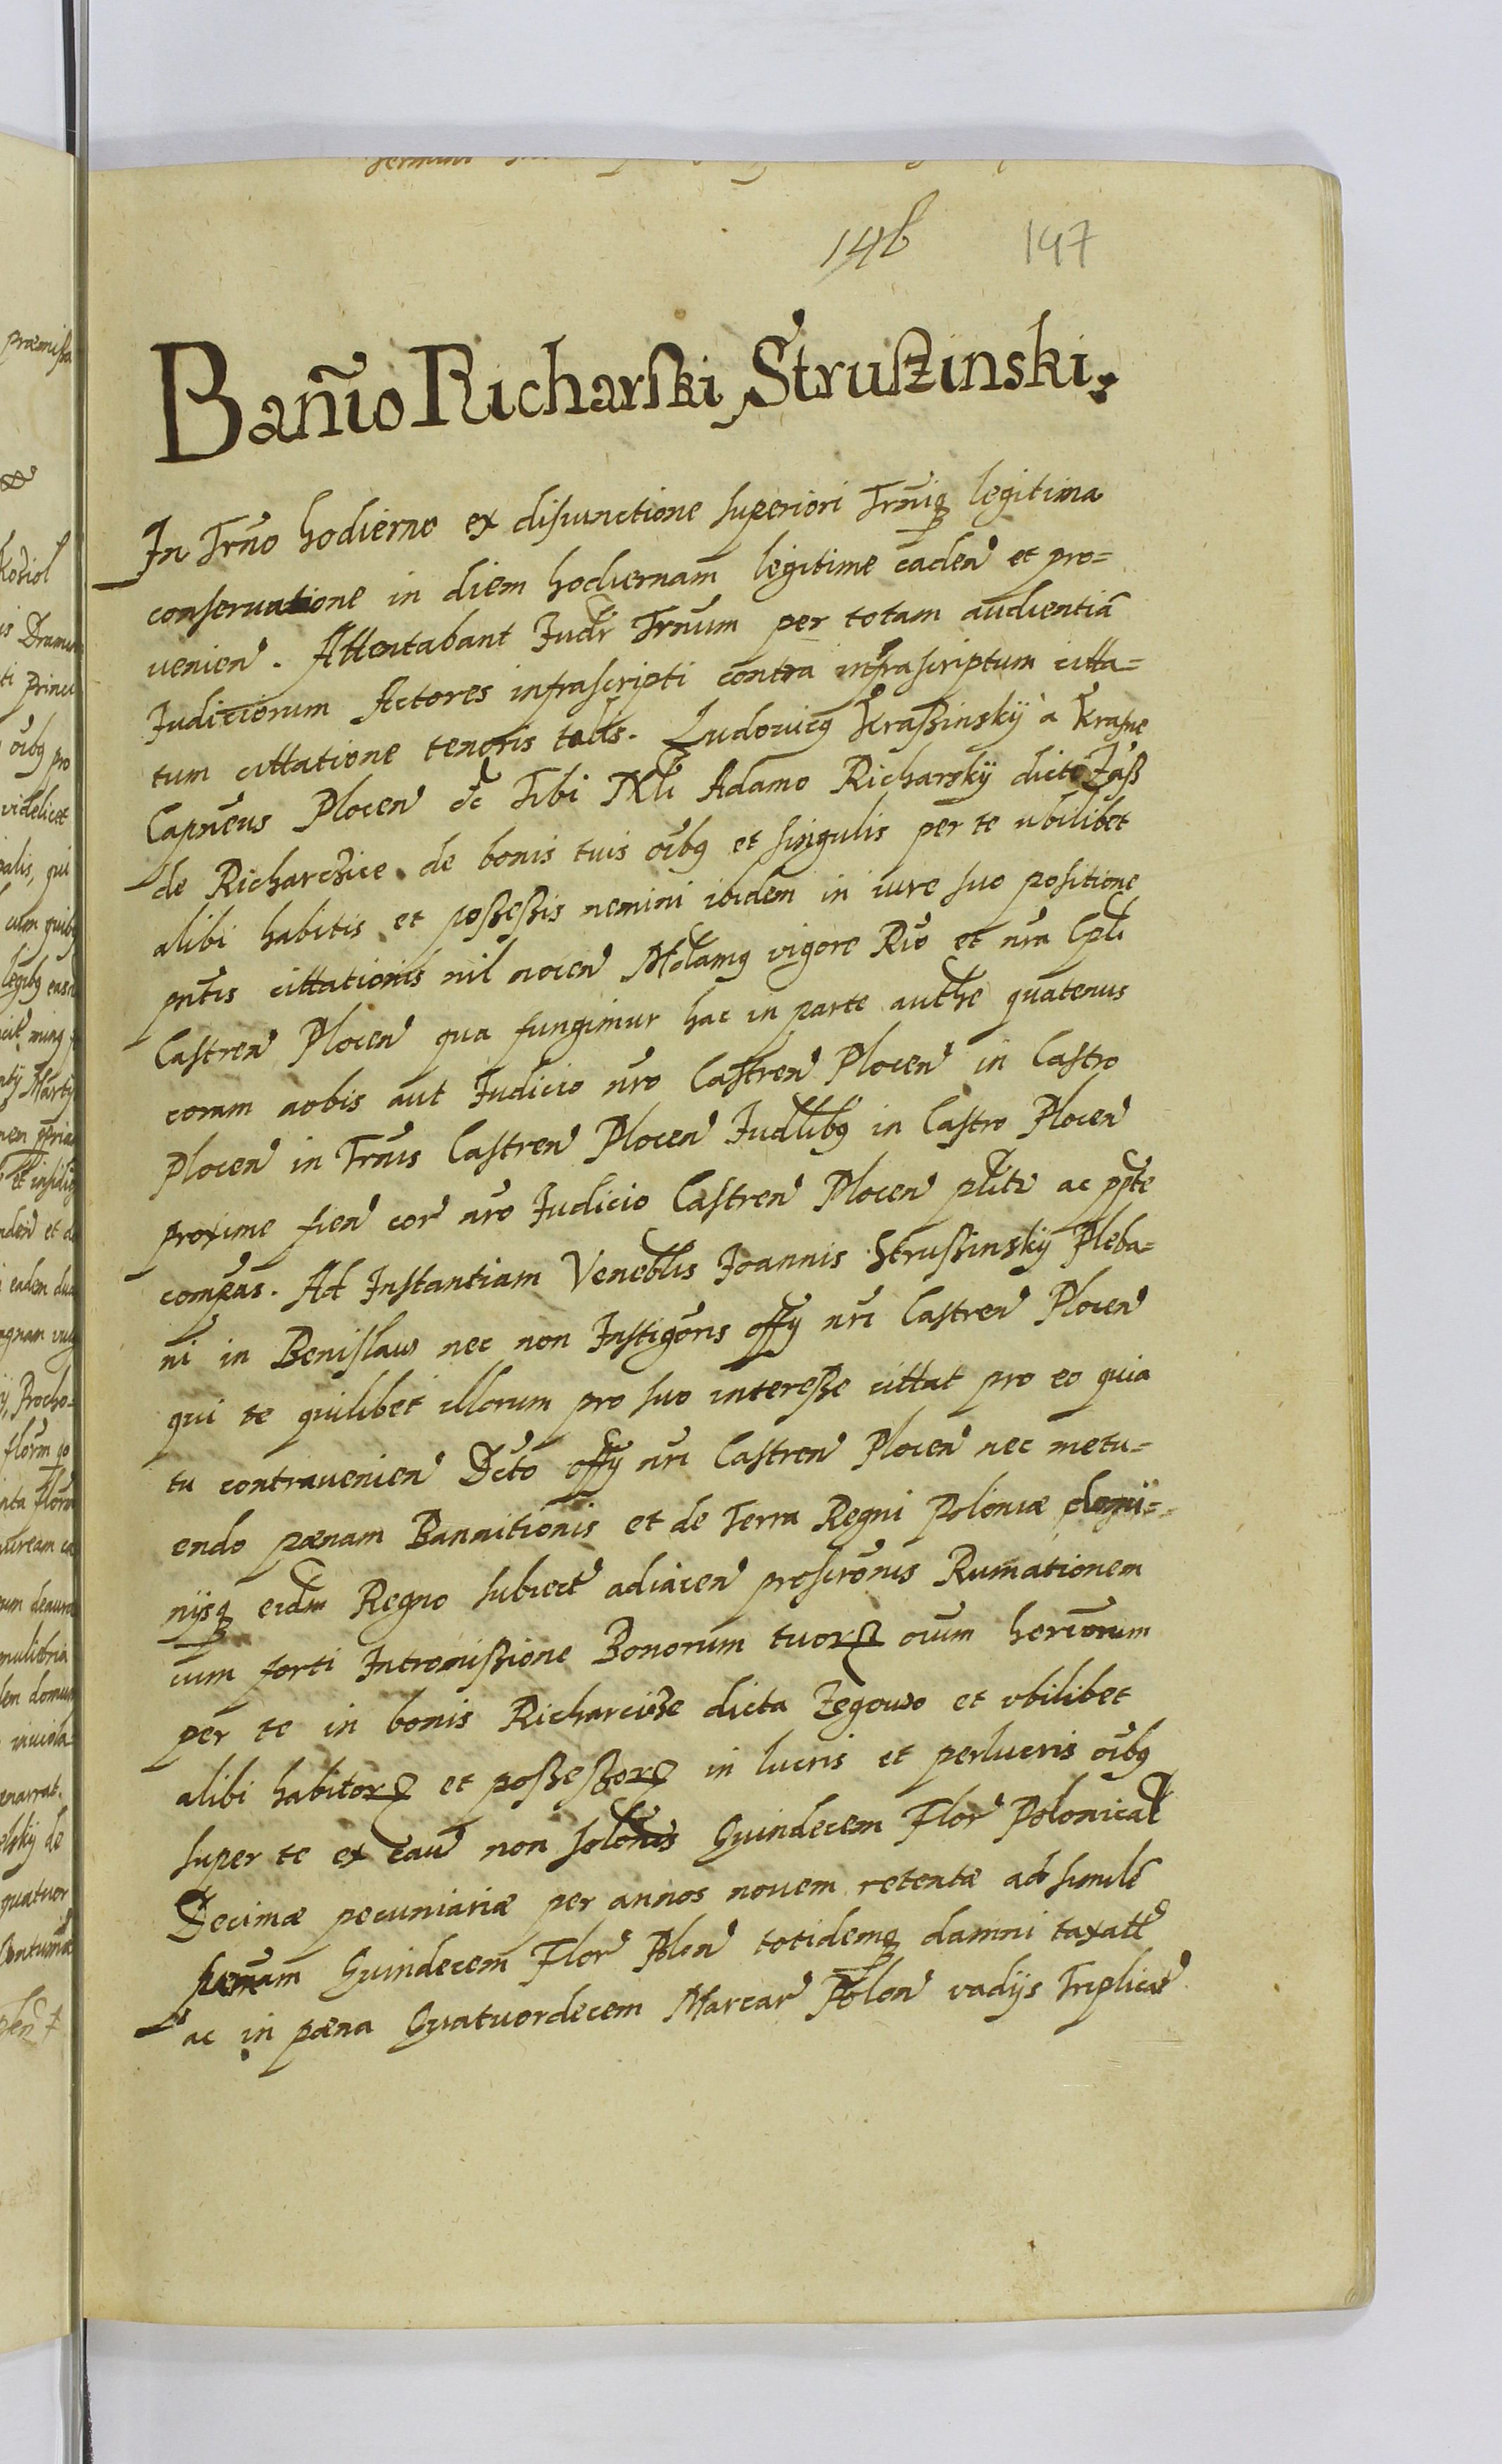 146 147
Bañio Richarski Struszinski.
In Trño hodierno ex disiunctione superiori Trñiq legitima
conseruatione in diem hodiernam legitime caden et pro=
uenien. Attentabant Judr Trñum per totam audientiã
Judiciorum Actores infrascripti contra infrascriptum citta=
tum cittatione tenoris talis. Ludouicq Kraßinskÿ a Krasne
Capneus Plocen etc Tibi Nbli Adamo Richarskÿ dicto Zaß
de Richarcice de bonis tuis oibq et singulis per te ubilibet
alibi habitis et poßeßis nemini ibidem in iure suo positione
pñtis cittationis nil nocen Mdamq vigore Rio et nra Cpli
Castren Plocen qua fungimur hac in parte authe quatenus
coram nobis aut Judicio nro Castren Plocen in Castro
Plocen in Trñis Castren Plocen Judlibq in Castro Plocen
proxime fien cor nro Judicio Castren Plocen plite ac ppte
compas. Ad Instantiam Veneblis Joannis Strußinskÿ Pleba=
ni in Benislaw nec non Instigoris offÿ nri Castren Plocen
qui te quilibet illorum pro suo intereße cittat pro eo quia
tu contrauenien Dcto offÿ nri Castren Plocen nec metu=
endo pænam Bannitionis et de Terra Regni Poloniæ domi=
nijsq eidm Regno subiect adiacen proscronis Rumationem
cum forti Intromißione Bonorum tuorꝝ oium horiorum
per te in bonis Richarcice dicta Zegowo et vbilibet
alibi habitorꝝ et poßeßorꝝ in lucris et perlucris oibq
super te ex cau non solonis Quindecem Flor Polonical
Decimæ pecuniariæ per annos nouem retentæ ad similẽ
summam Quindecem Flor Polon totidemq damni taxatt
ac in pæna Quatuordecem Marcar Polon vadijs Triplicib